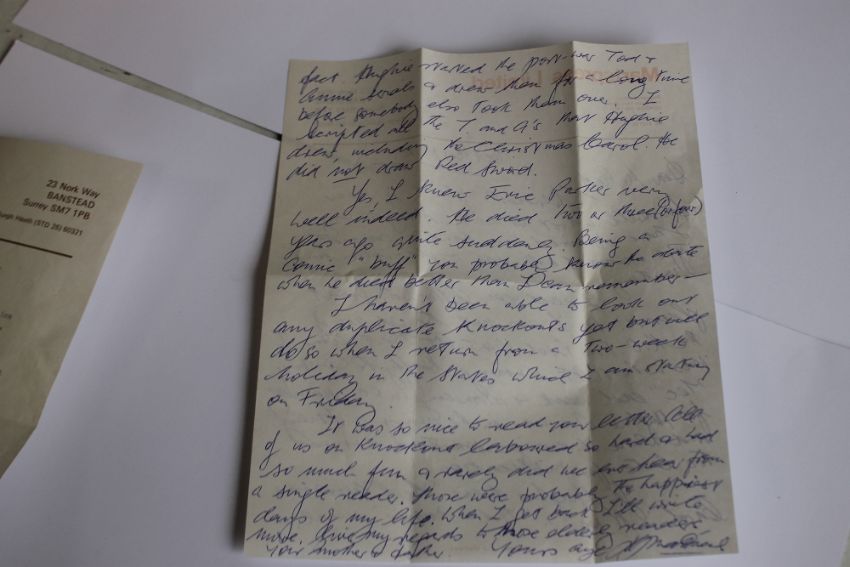 23 Nork Way
BANSTEAD
Surrey SM7 1PB
Burgh Heath (STD 25) 60371
fact Hughie started the port was Tod &
Annie serials & drew them for a long time
before somebody else took them over. I
scripted all the T and A's that Hughie
drew including the Christmas Carol. He
did not draw Red Sword.
Yes, I knew Eric Parker very
well indeed. He died two or three (or four)
years ago quite suddenly. Being a
comic "buff" you probably know the date
when he died better than I can remember —
I haven't been able to look out
any duplicate Knockouts yet but will
do so when I return from a two-week
holiday in the States which I am starting
on Friday.
It was so nice to read your letter. All
of us on Knockout laboured so hard & had
so much fun & rarely did we ever hear from
a single reader. Those were probably the happiest
days of my life. When I get back I'll write
more. Give my regards to those elderly readers
your mother & father. Yours aye